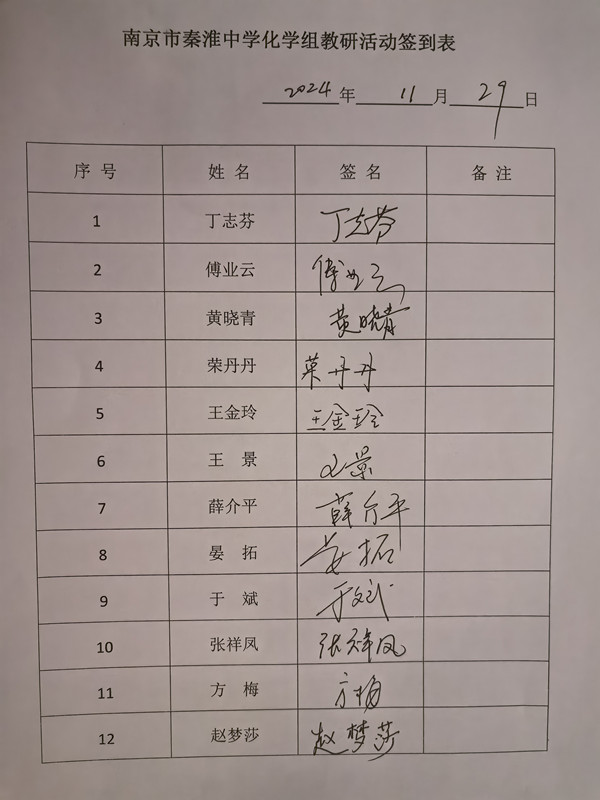 南京市秦淮中学化学组教研活动签到表
2024年 11月 29日
序号 姓名 签名 备注
1 丁志芬 丁志芬
2 傅业云 傅业云
3 黄晓青 黄晓青
4 荣丹丹 荣丹丹
5 王金玲 王金玲
6 王 景 王景
7 薛介平 薛介平
8 晏 拓 晏拓
9 于 斌 于斌
10 张祥凤 张祥凤
11 方 梅 方梅
12 赵梦莎 赵梦莎